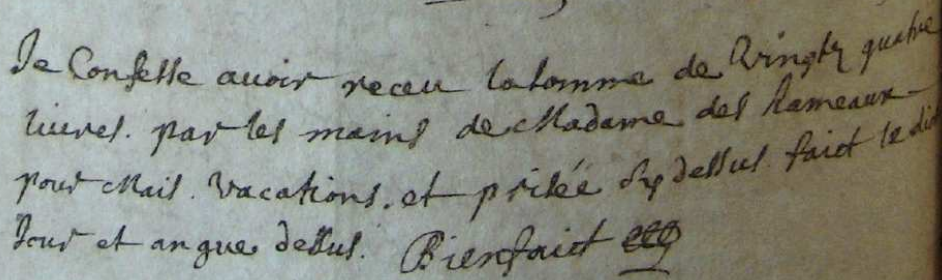 Je Confesse avoir receu la somme de Vingtz quatre
livres. par les mains de Madame des Rameaux
pour Mais. vacations. et prisée Cy dessus faict le dict
Jour et an que dessus. Bienfaict